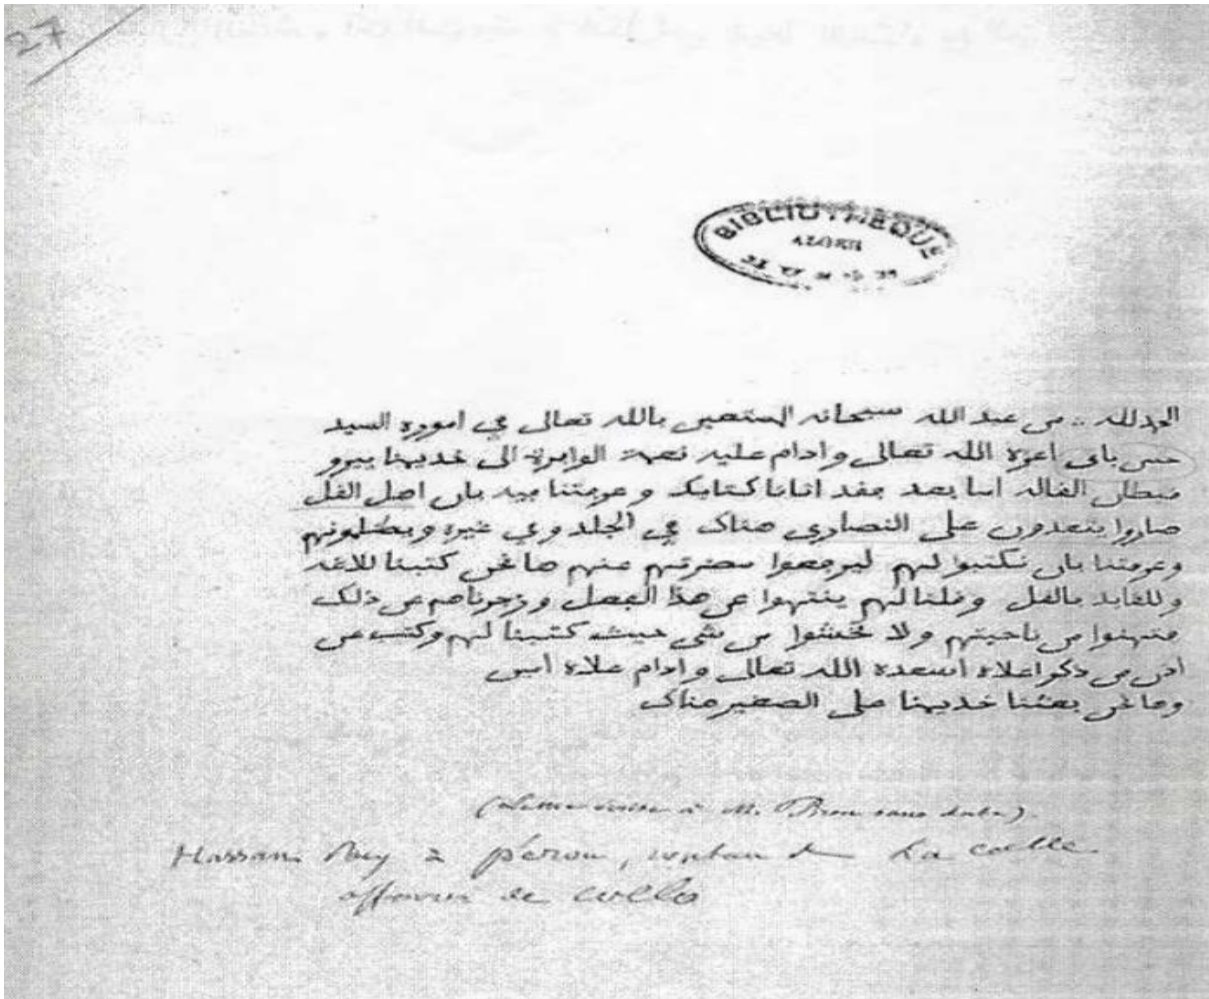 27
BIBLIOTHEQUE
ALGER
الحمد لله من عبد الله سبحانه المستعين بالله تعالى في اموره السيد
حسن باي اعزه الله تعالى وادام عليه نعمه الوافرة الى خديمنا بيرو
فنطل القاله اما بعد فقد اتانا كتابك وعرفتنا فيه بان اهل القل
صاروا يتعدون على النصارى هناك في الجلد وفي غيره ويظلمونهم
وعرفتنا بان نكتبوا لهم ليرفعوا مضرتهم عنهم ها نحن كتبنا للاغه
وللقايد بالقل وقلنا لهم ينتهوا عن هذا الفعل وزجرناهم عن ذلك
فتهنوا من ناحيتهم ولا تخشوا من شي حيث كتبنا لهم وكتب عن
اذن من ذكر اعلاه اسعده الله تعالى وادام علاه امين
وها نحن بعثنا خديمنا علي الصغير هناك
(Lettre à M. sans date)
Hassan Bey à peïrou, La calle
de collo